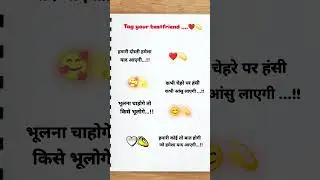 Tag your bestfriend ....❤️💫
हमारी दोस्ती हमेशा
याद आएगी...!!
कभी चेहरे पर हंसी
कभी आंसु लाएगी ...!!
भूलना चाहोगे तो
किसे भूलोगे...!!
हमारी कोई तो बात होगी
जो हमेशा याद आएगी...!!
चेहरे पर हंसी
आंसु लाएगी ...!!
भूलना चाहोगे
किसे भूलोगे